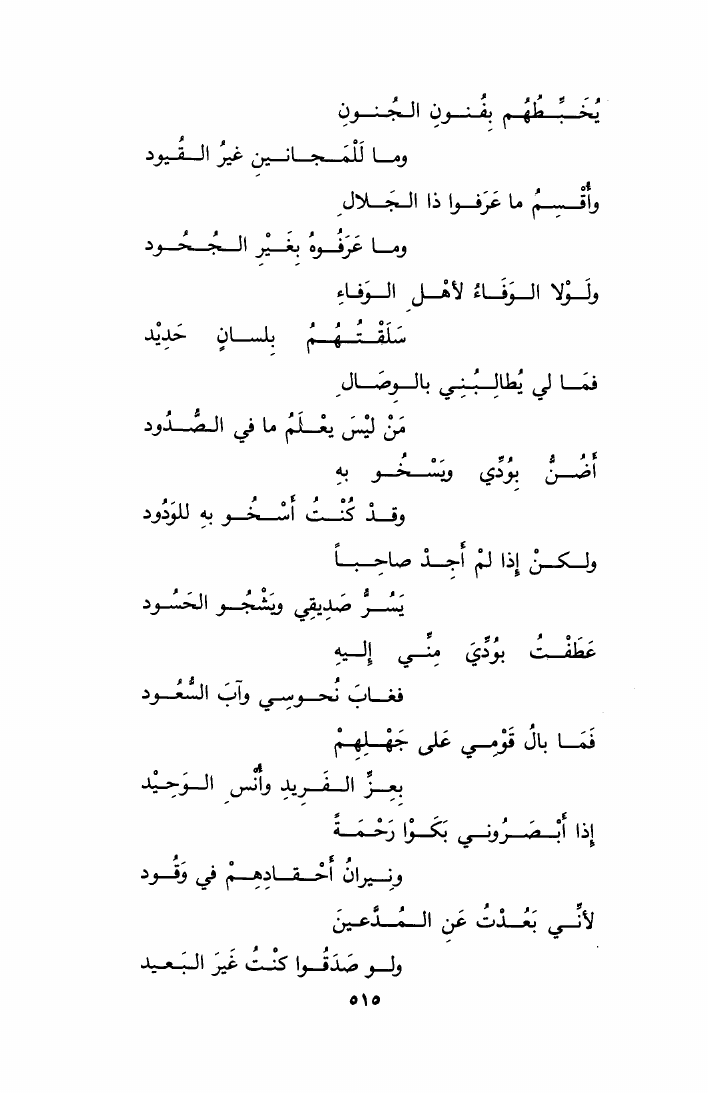 يُخَبِّطُهُم بِفُنونِ الجُنونِ
وما لَلْمَجانينِ غيرُ القُيود
وأُقْسِمُ ما عَرَفوا ذا الجَلالِ
وما عَرَفُوهُ بِغَيْرِ الجُحُود
ولَوْلا الوَفَاءُ لأهْلِ الوَفاءِ
سَلَقْتُهُم بِلسانٍ حَدِيْد
فمَا لي يُطالِبُنِي بالوِصَالِ
مَنْ ليْسَ يعْلَمُ ما في الصُّدُود
أَضُنُّ بوُدِّي ويَسْخُو بهِ
وقدْ كنْتُ أسْخُو بهِ للوَدُود
ولكنْ إذا لمْ أجِدْ صاحِباً
يَسُرُّ صَدِيقِي ويَشْجُو الحَسُود
عَطَفْتُ بوُدِّيَ مِنِّي إليهِ
فغابَ نُحوسِي وآبَ السُّعُود
فَمَا بالُ قَوْمِي عَلى جَهْلِهِمْ
بِعِزِّ الفَرِيدِ وأُنْسِ الوَحِيْد
إذا أبْصَرُوني بَكَوْا رَحْمَةً
ونِيرانُ أحْقادِهِمْ في وَقُود
لأنِّي بَعُدْتُ عَنِ المُدَّعينَ
ولو صَدَقُوا كنْتُ غَيَر البَعيد
٥١٥